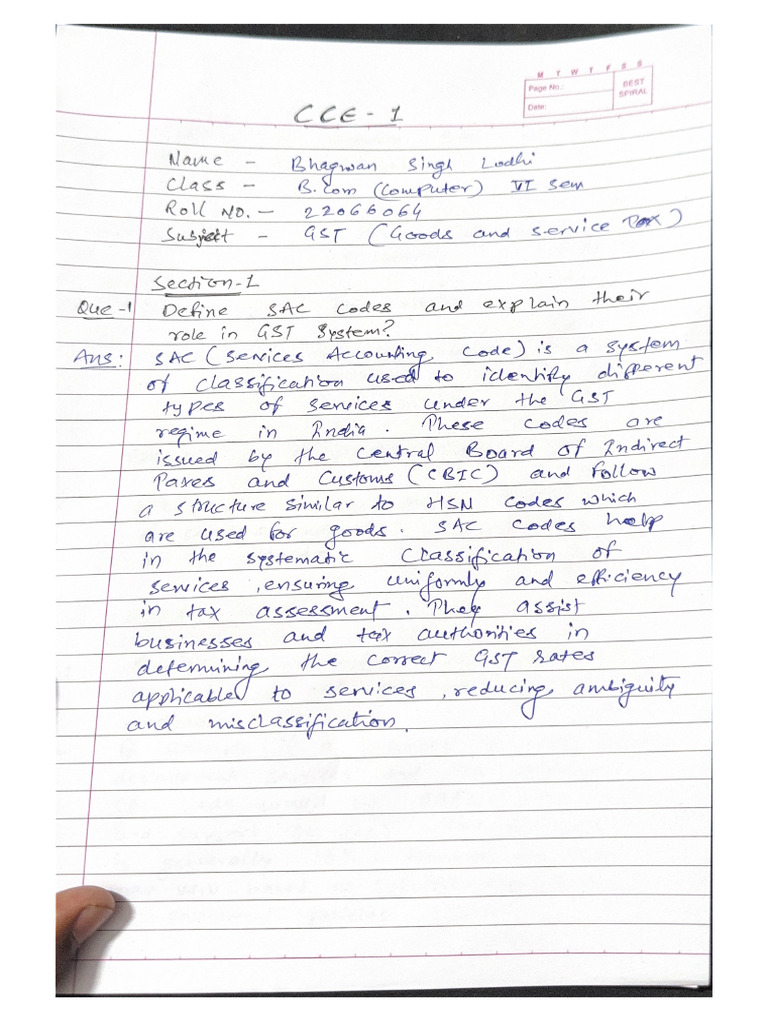 M T W T F S S
Page No.:
BEST
SPIRAL
Date:
CCE - 1
Name - Bhagwan Singh Lodhi
Class - B.Com (Computer) VI Sem
Roll NO. - 22066064
Subject - GST (Goods and Service Tax)
Section-1
Que-1 Define SAC Codes and explain their
role in GST System?
Ans: SAC (Services Accounting Code) is a system
of classification used to identify different
types of services under the GST
regime in India. These codes are
issued by the Central Board of Indirect
Taxes and Customs (CBIC) and follow
a structure similar to HSN codes which
are used for goods. SAC codes help
in the systematic classification of
services, ensuring uniformly and efficiency
in tax assessment. They assist
businesses and tax authorities in
determining the correct GST rates
applicabled to services, reducing ambiguity
and misclassification.